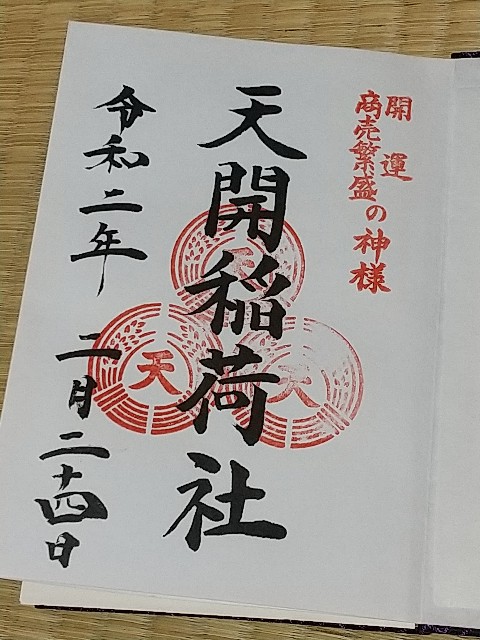 開運
商売繁盛の神様
天開稲荷社
天
天
天
令和二年 二月二十四日